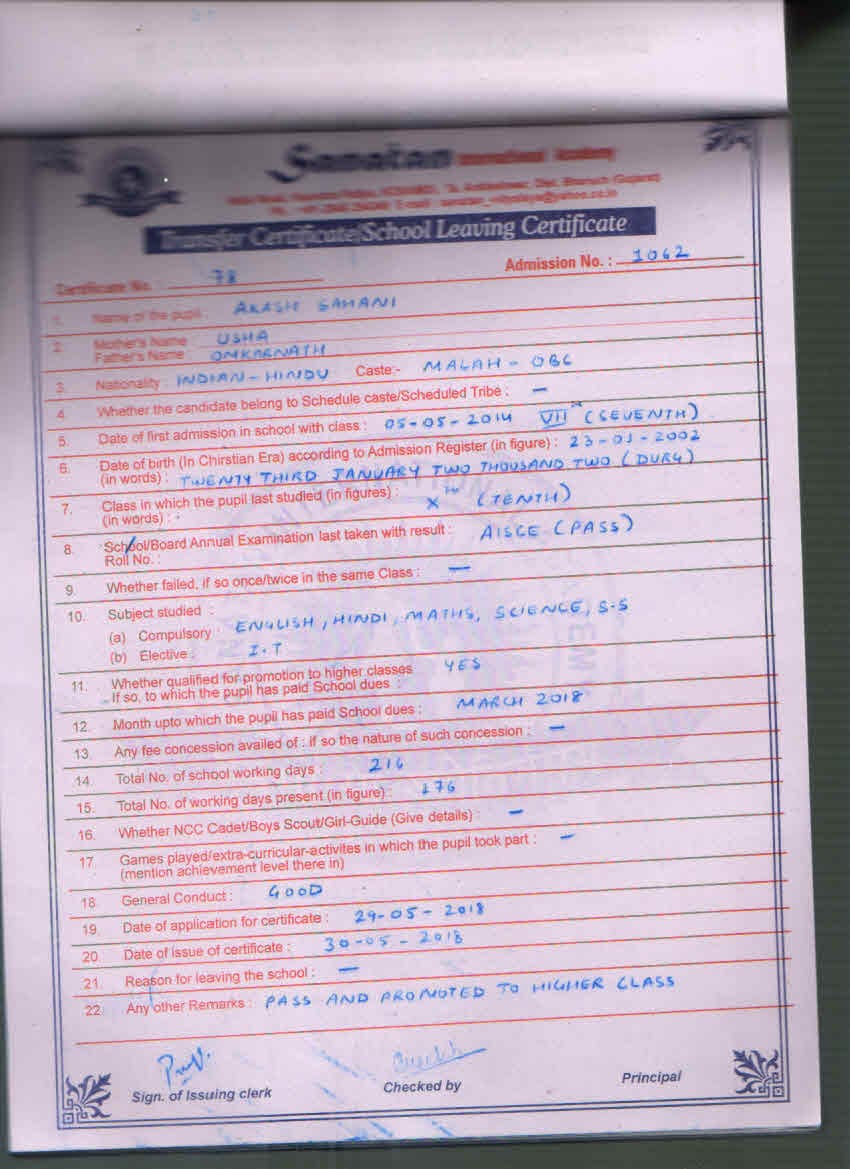 Sanatan International Academy
Transfer Certificate/School Leaving Certificate
Certificate No. : 78
Admission No. : 1062
1. Name of the pupil : AKASH SAHANI
2. Mother's Name USHA
Father's Name : OMKARNATH
3. Nationality : INDIAN - HINDU Caste:- MALAH - OBC
4. Whether the candidate belong to Schedule caste/Scheduled Tribe : —
5. Date of first admission in school with class : 05-05-2014 VII (SEVENTH)
6. Date of birth (In Chirstian Era) according to Admission Register (in figure) : 23-01-2002
(in words) : TWENTY THIRD JANUARY TWO THOUSAND TWO (DURG)
7. Class in which the pupil last studied (in figures) : X TH (TENTH)
(in words) :
8. School/Board Annual Examination last taken with result : AISCE (PASS)
Roll No. :
9. Whether failed, if so once/twice in the same Class : —
10. Subject studied :
(a) Compulsory : ENGLISH, HINDI, MATHS, SCIENCE, S-S
(b) Elective : I.T
11. Whether qualified for promotion to higher classes YES
If so, to which the pupil has paid School dues :
12. Month upto which the pupil has paid School dues : MARCH 2018
13. Any fee concession availed of : if so the nature of such concession : —
14. Total No. of school working days : 216
15. Total No. of working days present (in figure) : 176
16. Whether NCC Cadet/Boys Scout/Girl-Guide (Give details) : —
17. Games played/extra-curricular-activites in which the pupil took part : —
(mention achievement level there in)
18. General Conduct : GOOD
19. Date of application for certificate : 29-05-2018
20. Date of issue of certificate : 30-05-2018
21. Reason for leaving the school : —
22. Any other Remarks : PASS AND PROMOTED TO HIGHER CLASS
Sign. of Issuing clerk
Checked by
Principal